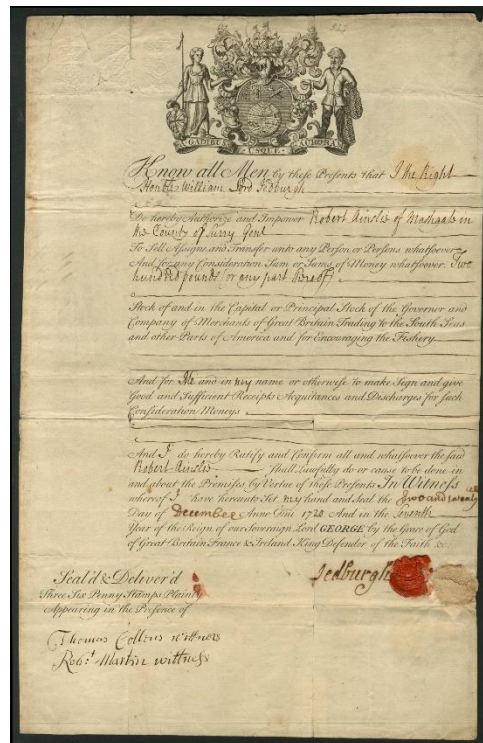 GADIBUS USQUE AURORAM
Know all Men by these Presents that I the Right
Honble William Lord Jedburgh
Do hereby Authorize and Impower Robert Ainslie of in
the County of Surry Gent
To Sell Assign and Transfer unto any Person or Persons whatsoever
And for any Consideration Sum or Sums of Money whatsoever Two
hundred pounds or any part thereof
Stock of and in the Capital or Principal Stock of the Governor and
Company of Merchants of Great Britain Trading to the South Seas
and other Parts of America and for Encouraging the Fishery
And for Me and in my name or otherwise to make Sign and give
Good and Sufficient Receipts Acquitances and Discharges for such
Consideration Moneys
And I do hereby Ratify and Confirm all and whatsoever the said
Robert Ainslie Shall Lawfully do or cause to be done in
and about the Premises by Vertue of these Presents In Witness
whereof I have hereunto Set my hand and Seal the Two and twenty
Day of December Anno Dni 1720 And in the Seventh
Year of the Reign of our Sovereign Lord GEORGE by the Grace of God
of Great Britain France & Ireland King Defender of the Faith &c
Seal'd & Deliver'd
Three Six Penny Stamps Plainly
Appearing in the Presence of
Jedburgh
Thomas Collens wittness
Robt Martin wittness